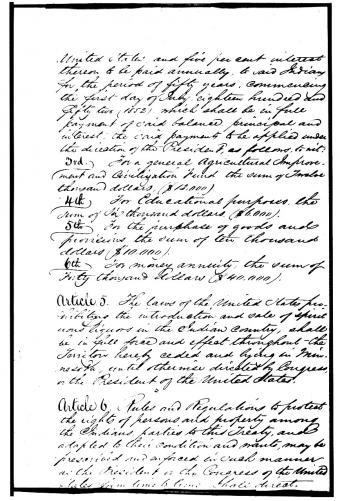 United States, and five per cent interest
thereon to be paid annually, to said Indians
for the period of fifty years, commencing
the first day of July eighteen hundred and
fifty two (1852) which shall be in full
payment of said balance, principal and
interest, the said payments to be applied under
the direction of the President, as follows, to wit:
3rd. For a general Agricultural Improve-
ment and Civilization Fund the sum of Twelve
thousand dollars, ($12,000)
4th For Educational purposes, the
sum of Six thousand dollars ($6,000).
5th For the purchase of goods and
provisions, the sum of ten thousand
dollars ($10,000).
6th For money annuity, the sum of
Forty thousand dollars ($40,000).
Article 5. The laws of the United States pro-
hibiting the introduction and sale of spirit
uous liquors in the Indian country, shall
be in full force and effect throughout the
Territory hereby ceded and lying in Min-
nesota, until otherwise directed by Congress
or the President of the United States.
Article 6. Rules and Regulations to protect
the rights of persons and property among
the Indians parties to this Treaty, and
adapted to their condition and wants, may be
prescribed and enforced in such manner
as the President or the Congress of the United
States from time to time shall direct.